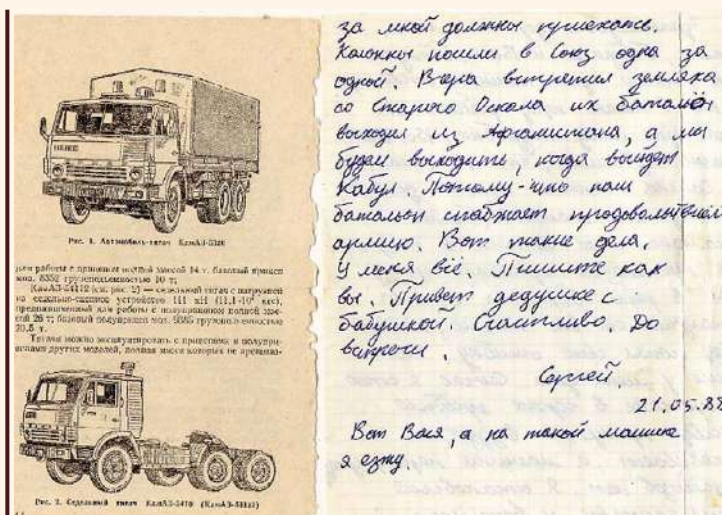 Рис. 1. Автомобиль-тягач КамАЗ-5320
для работы с прицепом полной массой 14 т. базовый прицеп
мод. 8352 грузоподъемностью 10 т;
КамАЗ-54112 (см. рис. 2) — седельный тягач с нагрузкой
на седельно-сцепное устройство 111 кН (11,1·10³ кгс),
предназначенный для работы с полуприцепом полной мас-
сой 26 т; базовый полуприцеп мод. грузоподъемностью
20,5 т.
Тягачи можно эксплуатировать с прицепами и полупри-
цепами других моделей, полная масса которых не превыша-
Рис. 2. Седельный тягач КамАЗ-5410
за мной должны приехать.
Колонны пошли в Союз одна за
одной. Вчера встретил земляка
со Старого Оскола их батальён
выходил из Афганистана, а мы
будем выходить, когда выйдет
Кабул. Потому-что наш
батальон снабжает продовольствием
армию. Вот такие дела.
У меня всё. Пишите как
вы. Привет дедушке с
бабушкой. Счастливо. До
встречи.
Сергей
21.05.88
Вот Вася, а на такой машине
я езжу.